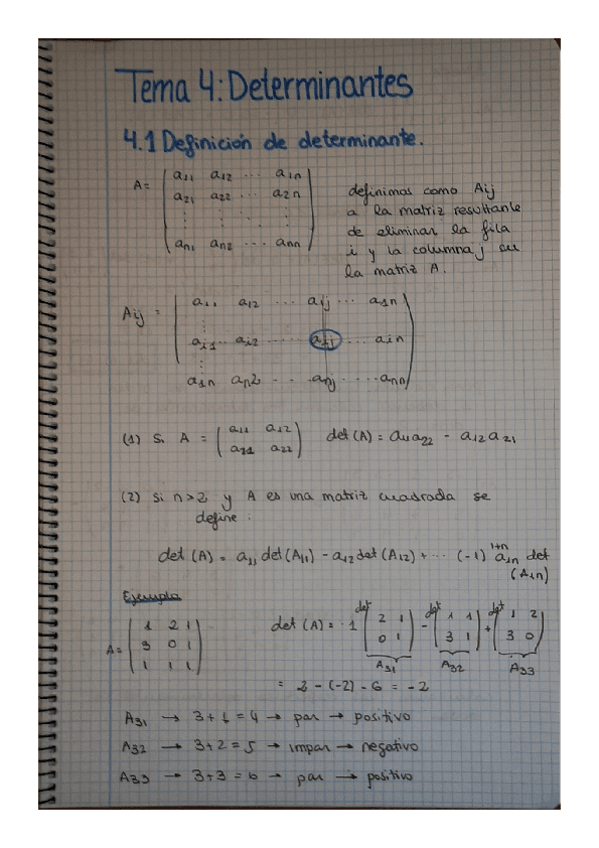 Tema 4: Determinantes
4.1 Definición de determinante.
A = ( a11 a12 ... a1n
a21 a22 ... a2n
an1 an2 ... ann )
definimos como Aij
a la matriz resultante
de eliminar la fila
i y la columna j en
la matriz A.
Aij = ( a11 a12 ... a1j ... a1n
ai1 ... ai2 ... aij ... ain
a1n an2 ... anj ... ann )
(1) Si A = ( a11 a12
a21 a22 ) det (A) = a11a22 - a12a21
(2) Si n>2 y A es una matriz cuadrada se
define:
det (A) = a11 det(A11) - a12 det (A12) + ... (-1)^1+n a1n det
(A1n)
Ejemplo
A = ( 1 2 1
3 0 1
1 1 1 )
det (A) = 1 det ( 2 1
0 1 ) - det ( 1 1
3 1 ) + det ( 1 2
3 0 )
A31 A32 A33
= 2 - (-2) - 6 = -2
A31 → 3+1 = 4 → par → positivo
A32 → 3+2 = 5 → impar → negativo
A33 → 3+3 = 6 → par → positivo